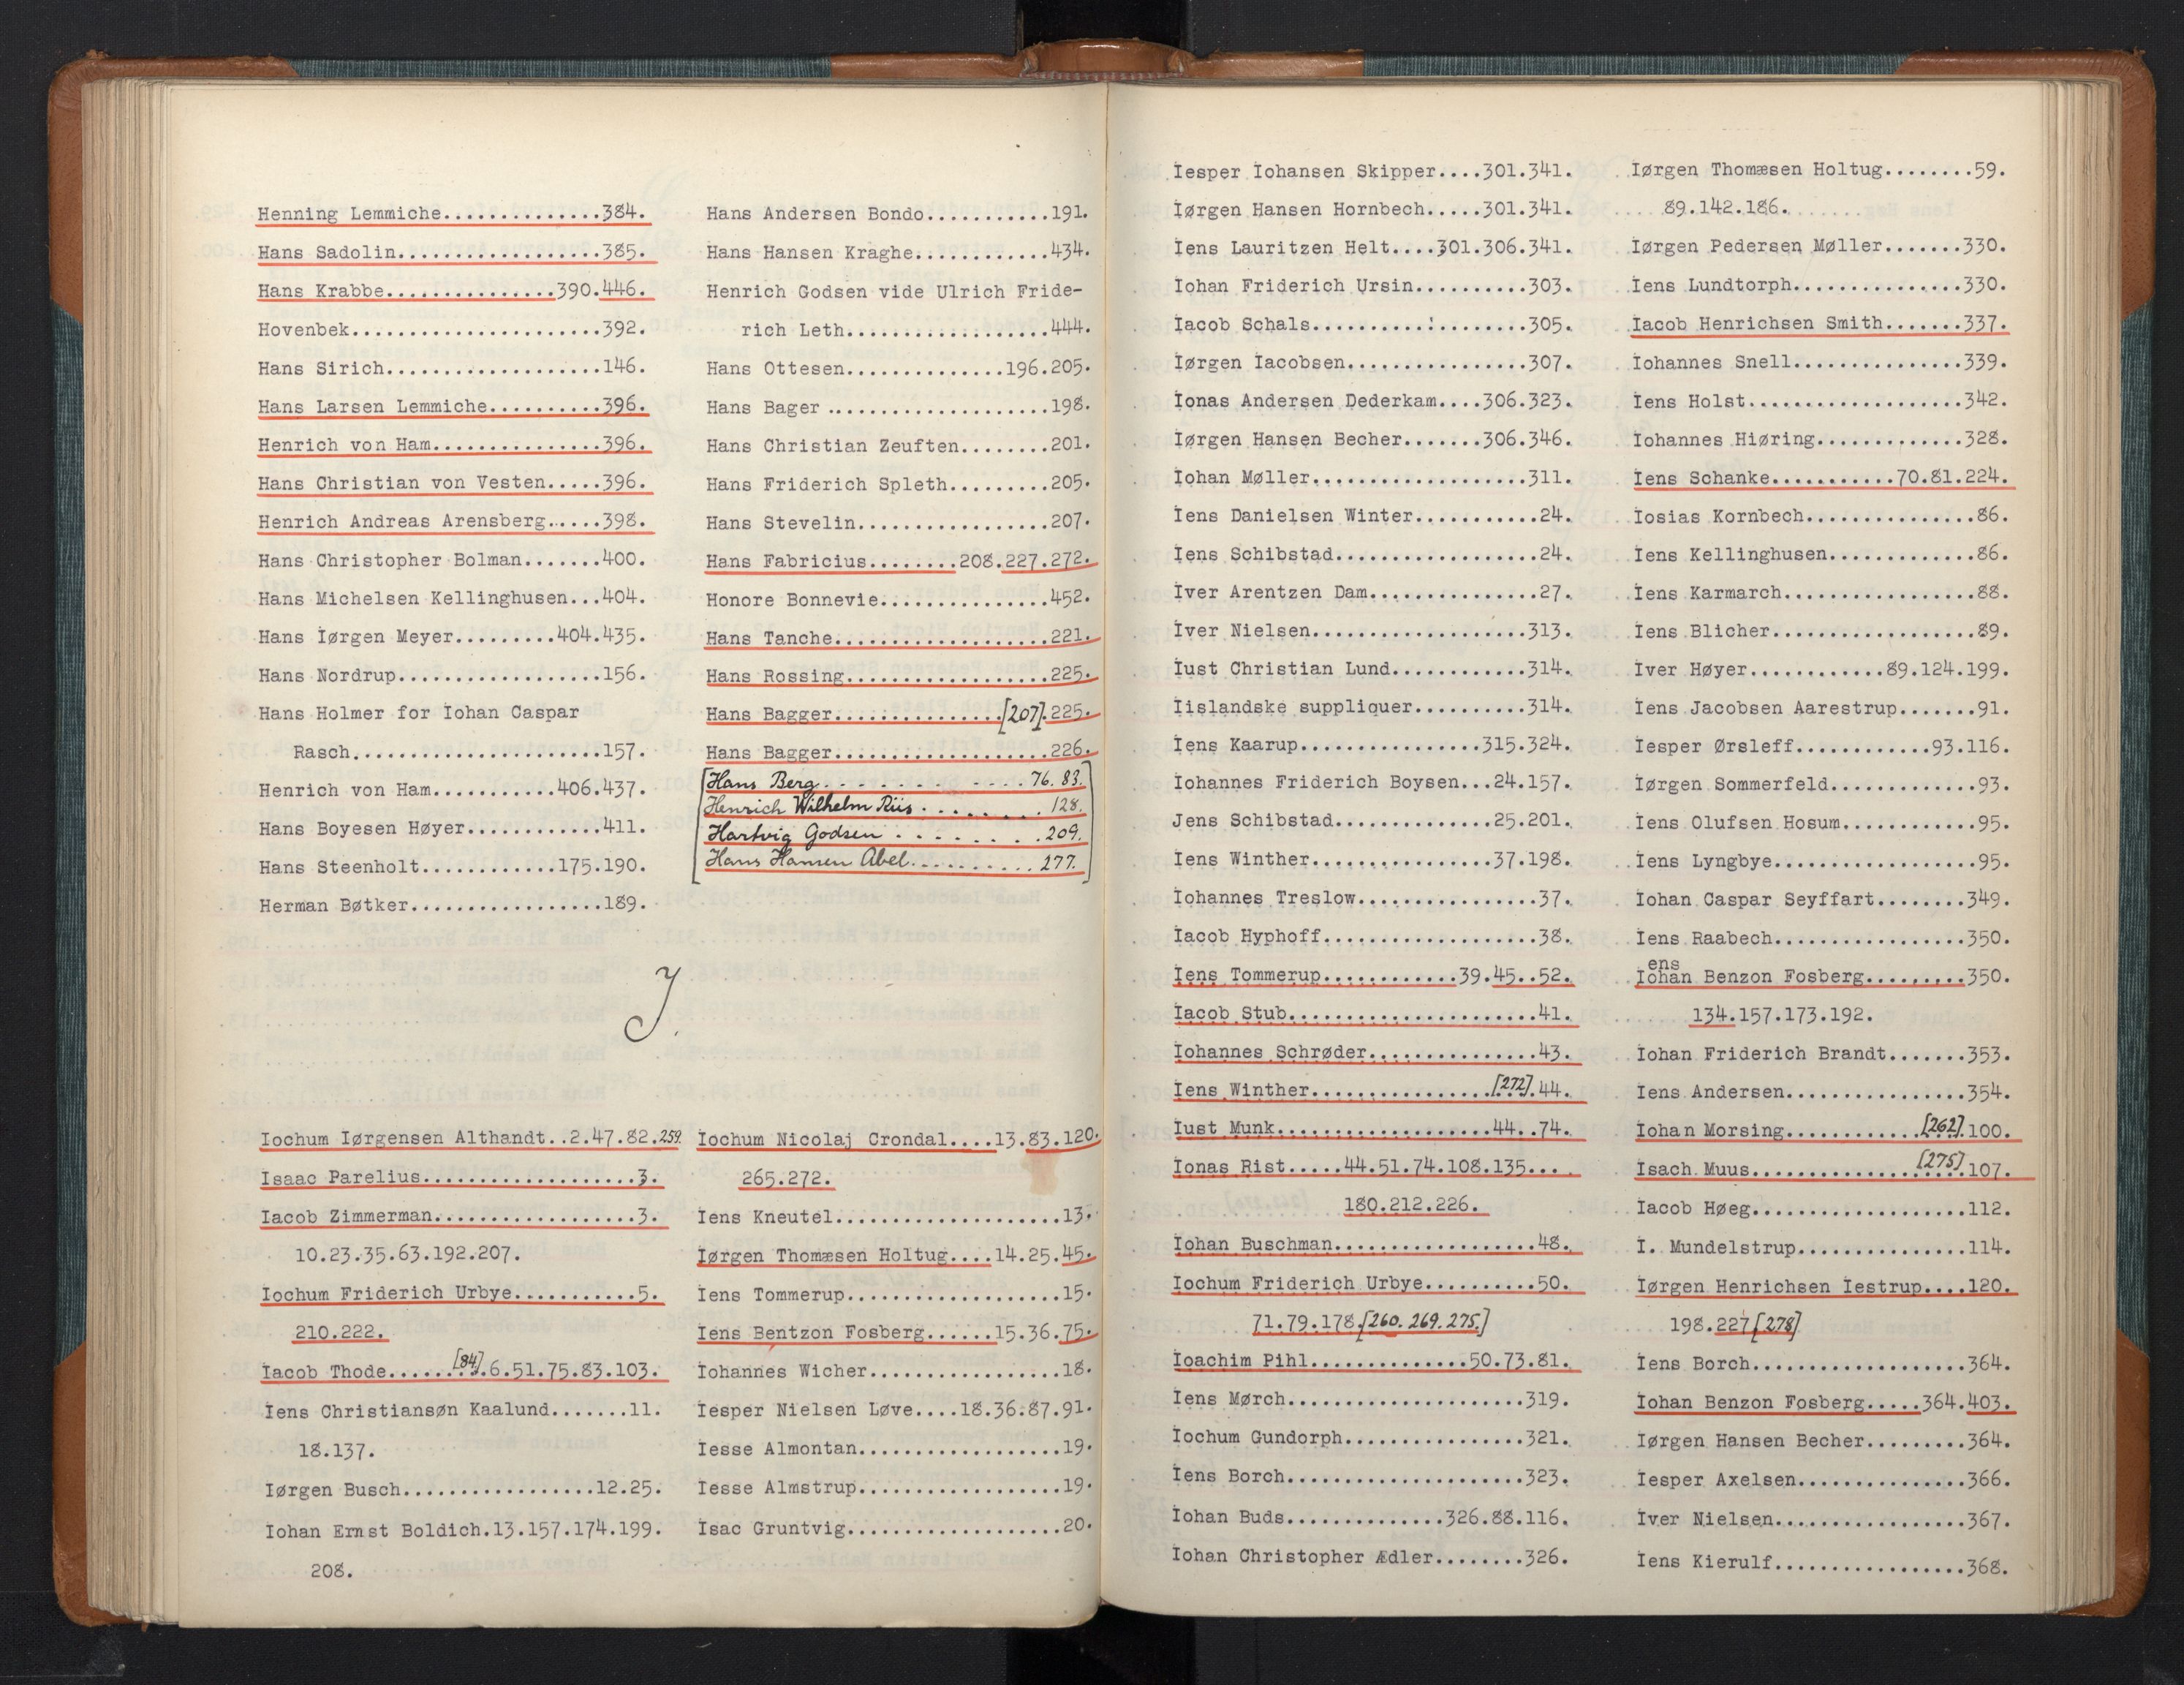 Henning Lemmiche...............384.
Hans Sadolin...................385.
Hans Krabbe................390.446.
Hovenbek.......................392.
Hans Sirich....................146.
Hans Larsen Lemmiche...........396.
Henrich von Ham................396.
Hans Christian von Vesten.....396.
Henrich Andreas Arensberg.....398.
Hans Christopher Bolman.......400.
Hans Michelsen Kellinghusen...404.
Hans Iørgen Meyer.........404.435.
Hans Nordrup...................156.
Hans Holmer for Iohan Caspar
Rasch.......................157.
Henrich von Ham...........406.437.
Hans Boyesen Høyer............411.
Hans Steenholt............175.190.
Herman Bøtker..................189.
Hans Andersen Bondo...........191.
Hans Hansen Kraghe............434.
Henrich Godsen vide Ulrich Fride-
rich Leth..................444.
Hans Ottesen..............196.205.
Hans Bager ....................198.
Hans Christian Zeuften........201.
Hans Friderich Spleth.........205.
Hans Stevelin.................207.
Hans Fabricius........208.227.272.
Honore Bonnevie...............452.
Hans Tanche...................221.
Hans Rossing..................225.
Hans Bagger...............[207].225.
Hans Bagger...................226.
[Hans Berg. . . . . . . . . . . 76. 83.]
Henrich Wilhelm Riis . . . . . . . 128.
Hartvig Godsen . . . . . . . . 209.
Hans Hansen Abel. . . . . . . . . . 277.
J.
Iochum Iørgensen Althandt..2.47.82.259.
Isaac Parelius...................3.
Iacob Zimmerman..................3.
10.23.35.63.192.207.
Iochum Friderich Urbye...........5.
210.222.
Iacob Thode......[84].6.51.75.83.103.
Iens Christiansøn Kaalund.......11.
18.137.
Iørgen Busch.................12.25.
Iohan Ernst Boldich.13.157.174.199.
208.
Iochum Nicolaj Crondal....13.83.120.
265.272.
Iens Kneutel....................13.
Iørgen Thomæsen Holtug....14.25.45.
Iens Tommerup...................15.
Iens Bentzon Fosberg......15.36.75.
Iohannes Wicher.................18.
Iesper Nielsen Løve....18.36.87.91.
Iesse Almontan..................19.
Iesse Almstrup..................19.
Isac Gruntvig...................20.
Iesper Iohansen Skipper....301.341.
Iørgen Hansen Hornbech.....301.341.
Iens Lauritzen Helt....301.306.341.
Iohan Friderich Ursin..........303.
Iacob Schals...................305.
Iørgen Iacobsen................307.
Ionas Andersen Dederkam....306.323.
Iørgen Hansen Becher.......306.346.
Iohan Møller...................311.
Iens Danielsen Winter...........24.
Iens Schibstad..................24.
Iver Arentzen Dam...............27.
Iver Nielsen...................313.
Iust Christian Lund............314.
Iislandske suppliquer..........314.
Iens Kaarup................315.324.
Iohannes Friderich Boysen...24.157.
Jens Schibstad..............25.201.
Iens Winther................37.198.
Iohannes Treslow................37.
Iacob Hyphoff...................38.
Iens Tommerup............39.45..52.
Iacob Stub......................41.
Iohannes Schrøder...............43.
Iens Winther................[272].44.
Iust Munk...................44..74.
Ionas Rist.....44.51.74.108.135...
180.212.226.
Iohan Buschman..................48.
Iochum Friderich Urbye..........50.
71.79.178.[260. 269. 275.]
Ioachim Pihl..............50.73.81.
Iens Mørch.....................319.
Iochum Gundorph................321.
Iens Borch.....................323.
Iohan Buds..............326.88.116.
Iohan Christopher Ædler........326.
Iørgen Thomæsen Holtug........59.
89.142.186.
Iørgen Pedersen Møller.......330.
Iens Lundtorph...............330.
Iacob Henrichsen Smith.......337.
Iohannes Snell...............339.
Iens Holst...................342.
Iohannes Hiøring.............328.
Iens Schanke...........70.81.224.
Iosias Kornbech...............86.
Iens Kellinghusen.............86.
Iens Karmarch.................88.
Iens Blicher..................89.
Iver Høyer............89.124.199.
Iens Jacobsen Aarestrup.......91.
Iesper Ørsleff............93.116.
Iørgen Sommerfeld.............93.
Iens Olufsen Hosum............95.
Iens Lyngbye..................95.
Iohan Caspar Seyffart........349.
Iens Raabech.................350.
ens
Iohan Benzon Fosberg.........350.
134.157.173.192.
Iohan Friderich Brandt.......353.
Iens Andersen................354.
Iohan Morsing............[262].100.
Isach Muus...............[275].107.
Iacob Høeg...................112.
I. Mundelstrup...............114.
Iørgen Henrichsen Iestrup....120.
198.227.[278]
Iens Borch...................364.
Iohan Benzon Fosberg.....364.403.
Iørgen Hansen Becher.........364.
Iesper Axelsen...............366.
Iver Nielsen.................367.
Iens Kierulf.................368.